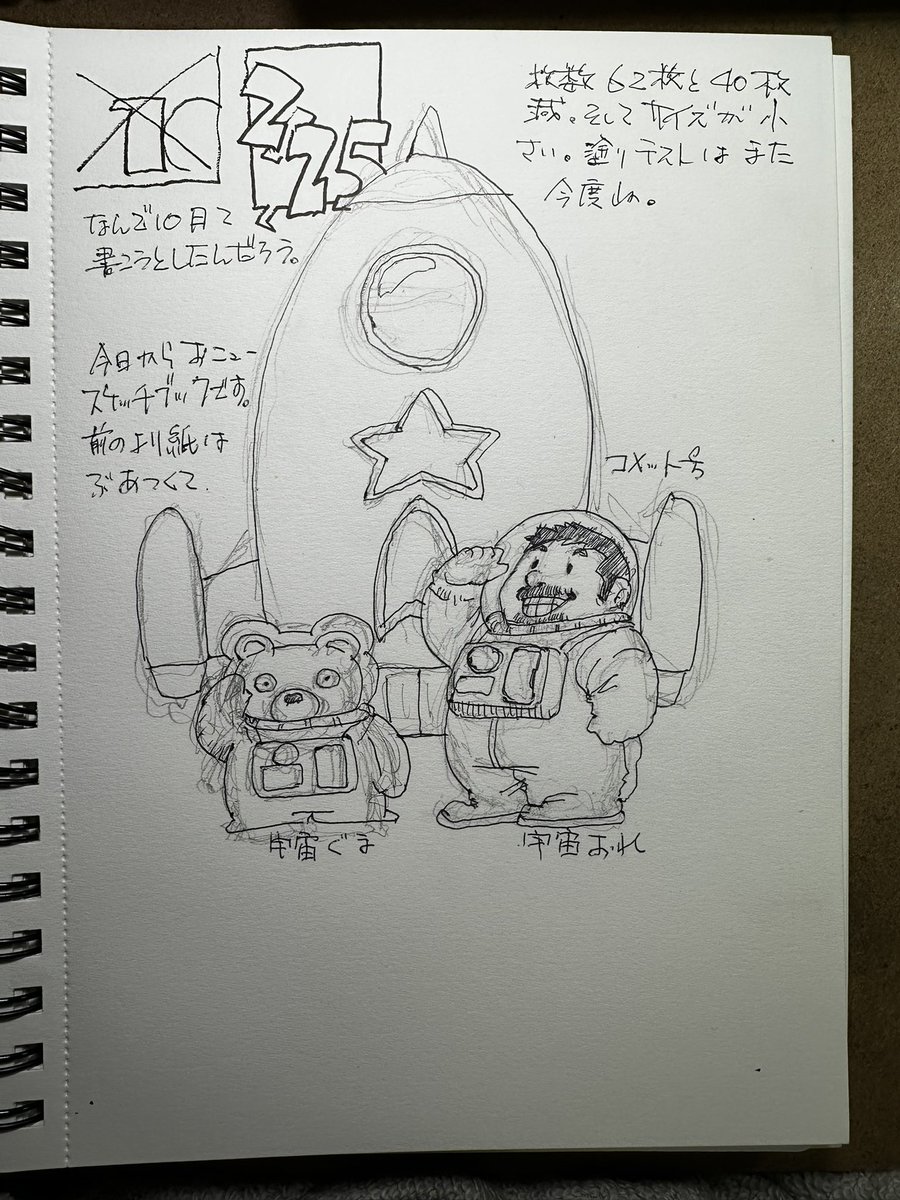 2/25
なんで10月て
書こうとしたんだろう。
枚数62枚と40枚
減。そしてサイズが小
さい。塗りテストはまた
今度ね。
今日からおニュー
スケッチブックです。
前のより紙は
ぶあつくて
コメット号
宇宙ぐま
宇宙おれ